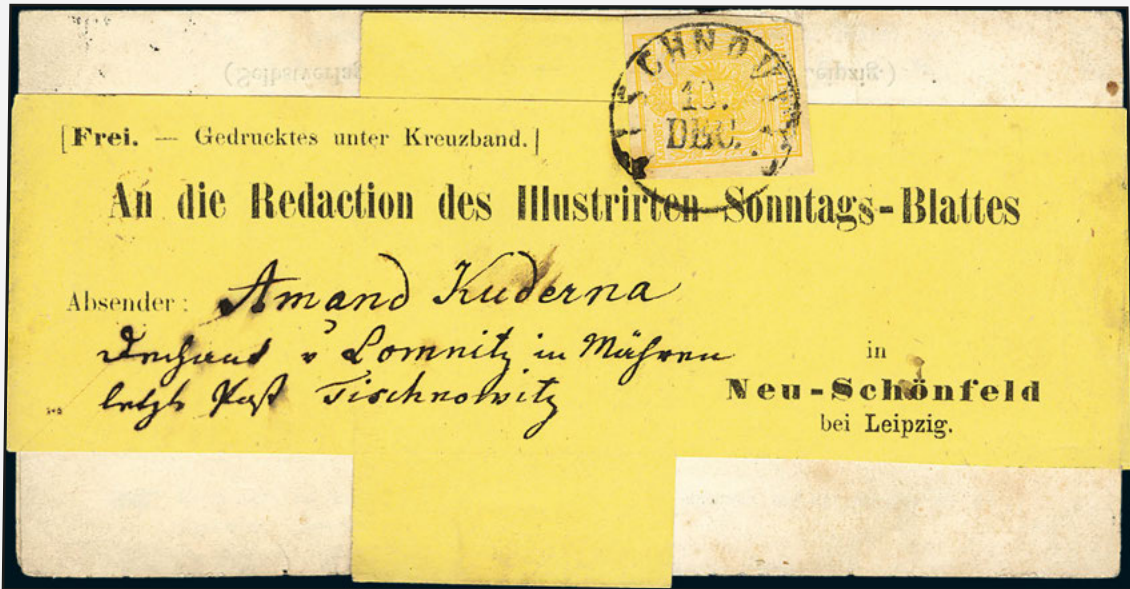 (Selbstverlag
Leipzig.)
TISCHNOWITZ
10.
DEC.
[Frei. — Gedrucktes unter Kreuzband.]
An die Redaction des Illustrirten Sonntags-Blattes
Absender: Amand Kuderna
Dechand v Lomnitz in Mähren
letzte Post Tischnowitz
in
Neu-Schönfeld
bei Leipzig.